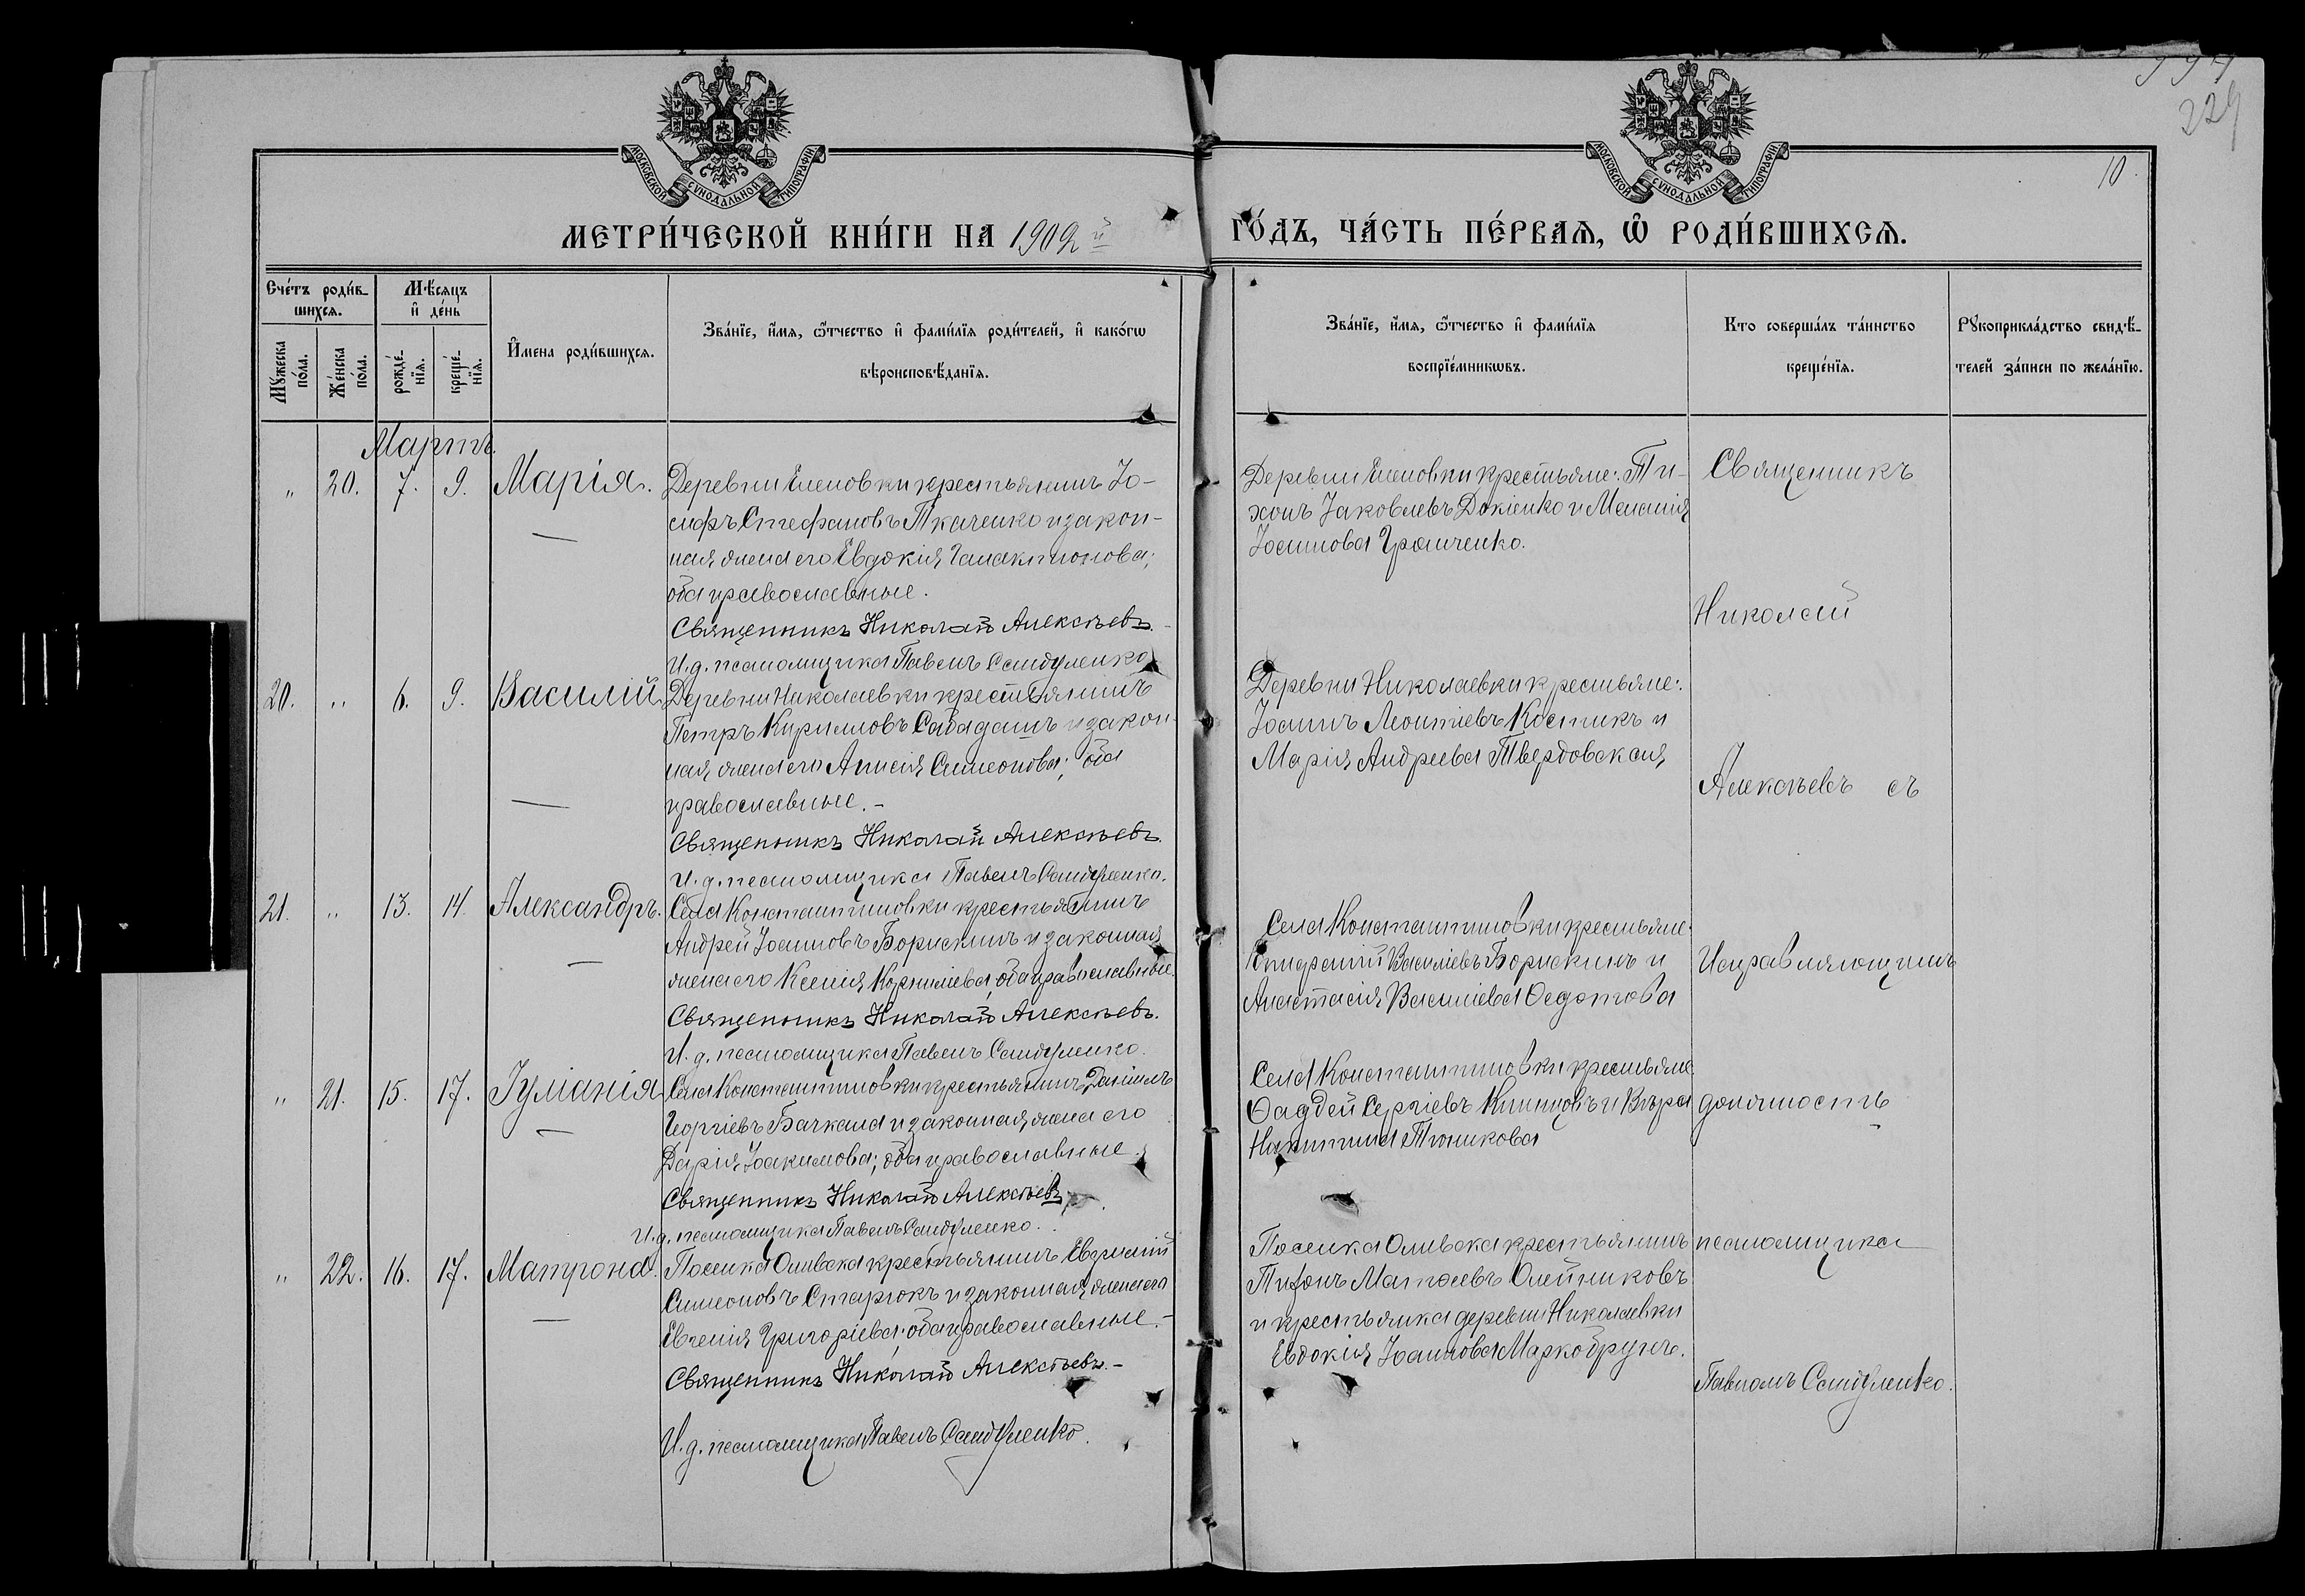 МОСКОВСКОЙ СѴНОДАЛЬНОЙ ТИПОГРАФІИ
МОСКОВСКОЙ СѴНОДАЛЬНОЙ ТИПОГРАФІИ
229
10.
МЕТРИ́ЧЕСКОЙ КНИ́ГИ НА 1902й
ГО́ДЪ, ЧА́СТЬ ПЕ́РВАЯ, Ѽ РОДИ́ВШИХСЯ.
Сче́тъ роди́в-
шихся.
Мꙋжеска по́ла.
Же́нска по́ла.
Мѣ́сяцъ
и҆ де́нь
рожде́-
нїя.
креще́-
нїя.
И҆мена роди́вшихся.
Зва́нїе, и҆́мя, ѻ҆́тчество и҆ фами́лїя роди́телей, и҆ како́гѡ
вѣроисповѣ́данїя.
Зва́нїе, и҆́мя, ѻ҆́тчество и҆ фами́лїя
воспрїе́мникѡвъ.
Кто соверша́лъ та́инство
креще́нїя.
Рꙋкоприкла́дство свидѣ́-
телей за́писи по жела́нїю.
Мартъ.
" 20. 7. 9. Марія.
Деревни Еленовки крестьянинъ Іо-
сифъ Стефановъ Ткаченко и закон-
ная жена его Евдокія Галактіонова;
оба православные.
Священникъ Николай Алексѣевъ.
И. д. псаломщика Павелъ Сандуленко
Деревни Еленовки крестьяне: Ти-
хонъ Іаковлевъ Докіенко и Меланія
Іоаннова Гранченко.
20. " 6. 9. Василій
Деревни Николаевки крестьянинъ
Петръ Кирилловъ Сабадашъ и закон-
ная жена его Анисія Симеонова; оба
православные. -
Священникъ Николай Алексѣевъ.
И. д. псаломщика Павелъ Сандуленко.
Деревни Николаевки крестьяне:
Іоаннъ Леонтіевъ Костикъ и
Марія Андреева Твердовская
21. " 13. 14. Александръ.
Села Константиновки крестьянинъ
Андрей Іоанновъ Борискинъ и законная
жена его Ксенія Корниліева, оба православные.
Священникъ Николай Алексѣевъ.
И. д. псаломщика Павелъ Сандуленко.
Села Константиновки крестьяне:
Васильевъ Борискинъ и
Анастасія Васильева Ѳедотова
" 21. 15. 17. Іуліанія
Села Константиновки крестьянинъ Даніилъ
Георгіевъ Бачкала и законная жена его
Дарія Іоакимова; оба православные.
Священникъ Николай Алексѣевъ
И. д. псаломщика Павелъ Сандуленко.
Села Константиновки крестьяне
Ѳаддей Сергіевъ Климовъ и Вѣра
Никитина Тюникова
" 22. 16. 17. Матрона.
Поселка Оливска крестьянинъ
Симеоновъ Старюкъ и законная жена его
Евгенія Григоріева; оба православные. -
Священникъ Николай Алексѣевъ. -
И. д. псаломщика Павелъ Сандуленко.
Поселка Оливска крестьянинъ
Матѳеевъ Олейниковъ
и крестьянка деревни Николаевки
Евдокія Іоаннова Маркобрунъ.
Священникъ
Николай
Алексѣевъ съ
Исправляющимъ
должность
псаломщика
Павломъ Сандуленко.